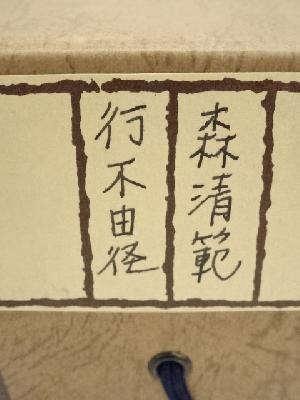 森清範
行不由径